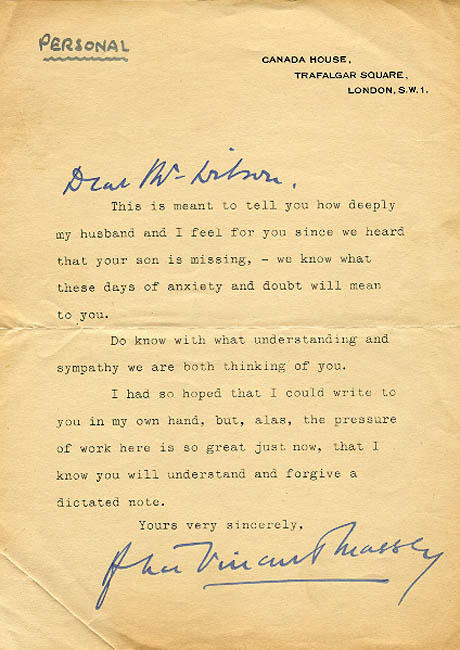 PERSONAL
CANADA HOUSE,
TRAFALGAR SQUARE,
LONDON, S.W.1.
Dear Mr Wilson,
This is meant to tell you how deeply
my husband and I feel for you since we heard
that your son is missing, - we know what
these days of anxiety and doubt will mean
to you.
Do know with what understanding and
sympathy we are both thinking of you.
I had so hoped that I could write to
you in my own hand, but, alas, the pressure
of work here is so great just now, that I
know you will understand and forgive a
dictated note.
Yours very sincerely,
Vincent Massey